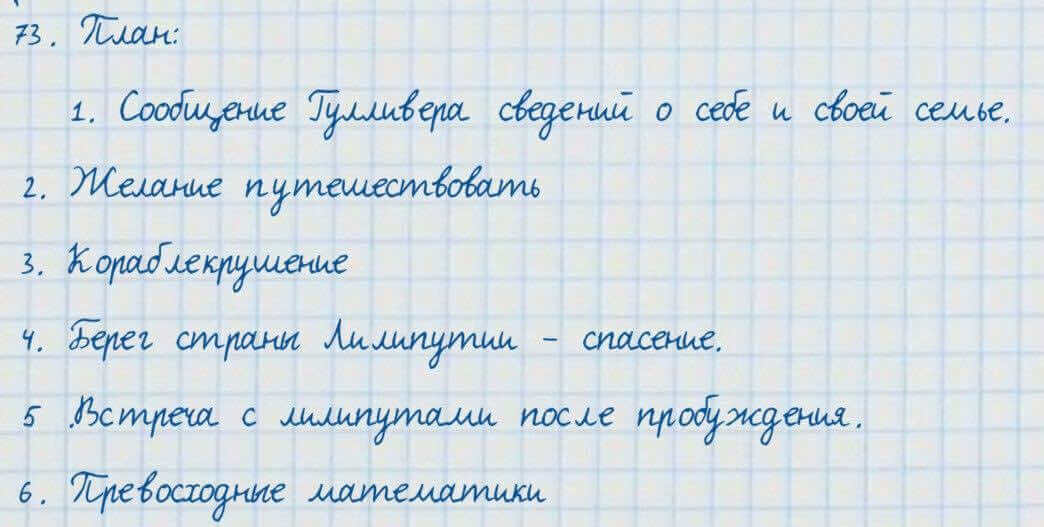 73. План:
1. Сообщение Гулливера сведений о себе и своей семье.
2. Желание путешествовать
3. Кораблекрушение
4. Берег страны Лилипутии - спасение.
5 .Встреча с лилипутами после пробуждения.
6. Превосходные математики